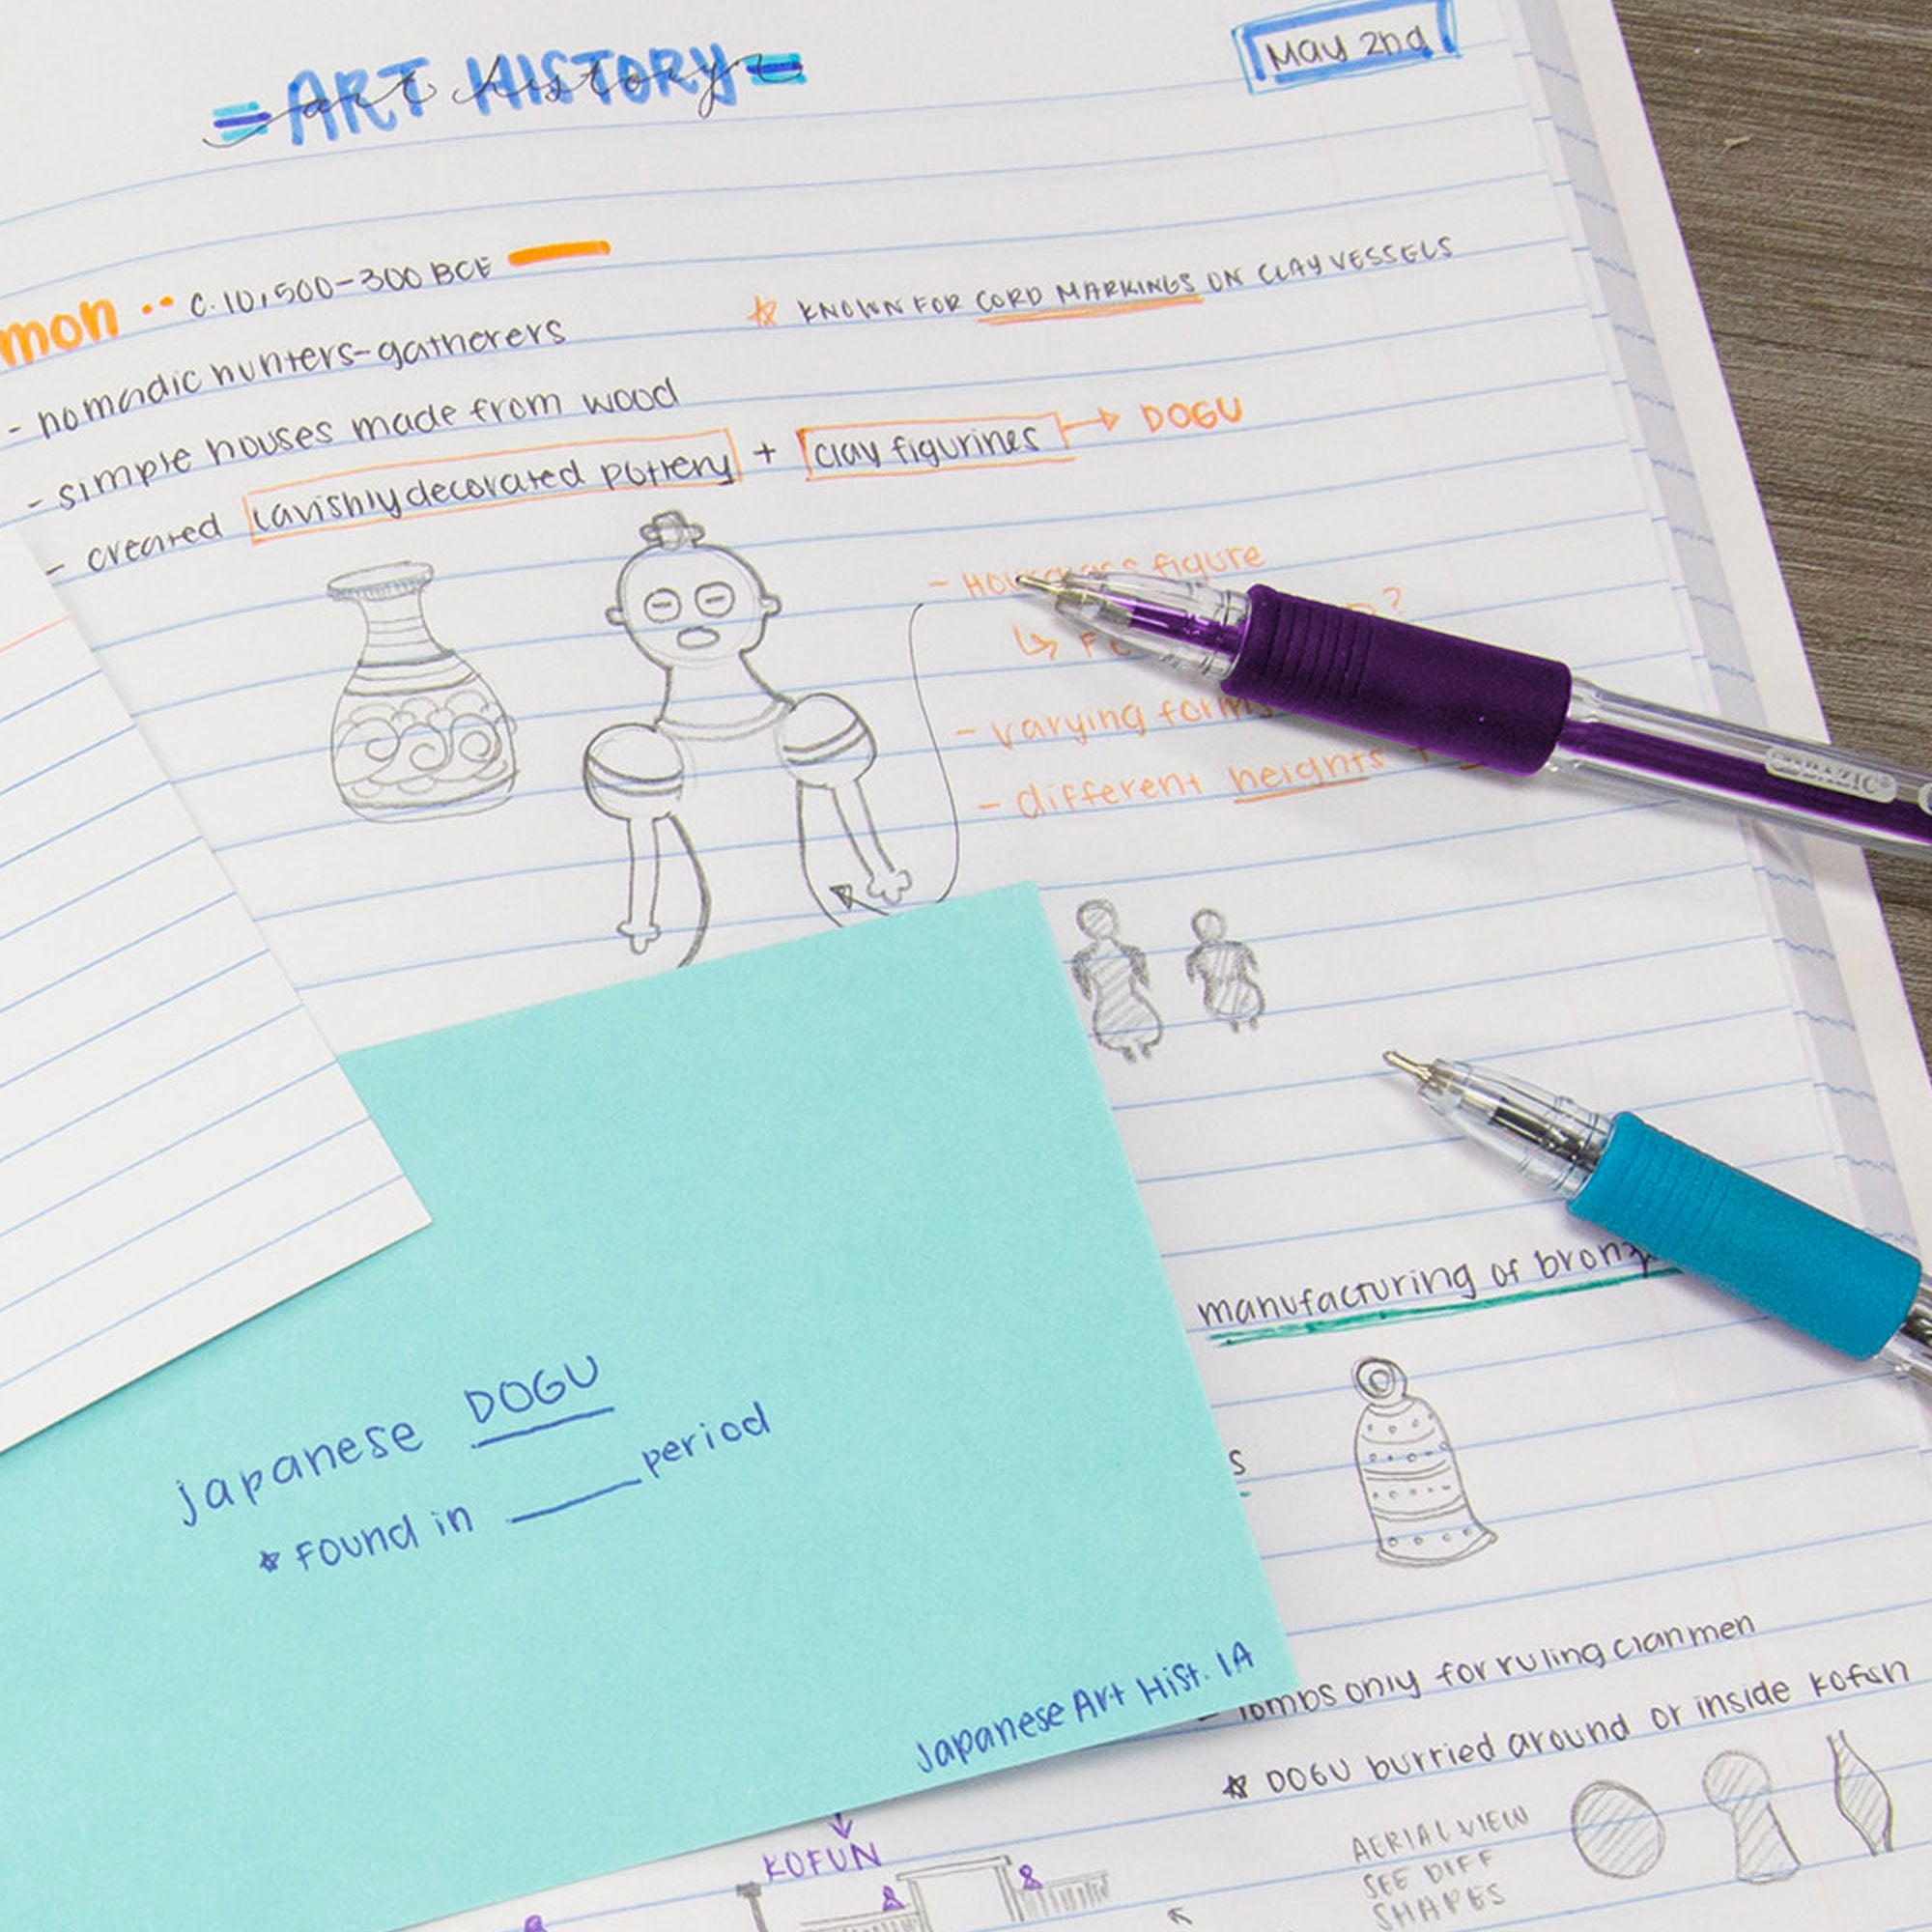 ART HISTORY
art history
May 2nd
mon c. 10,500-300 BCE
KNOWN FOR CORD MARKINGS ON CLAY VESSELS
- nomadic hunters-gatherers
- simple houses made from wood
- created lavishly decorated pottery + clay figurines → DOGU
- figure
- varying forms
- different heights
manufacturing of bronz
s
japanese DOGU
* FOUND in ____ period
Japanese Art Hist. 1A
- Tombs only for ruling clanmen
* DOGU burried around or inside kofun
AERIAL VIEW
SEE DIFF
SHAPES
KOFUN